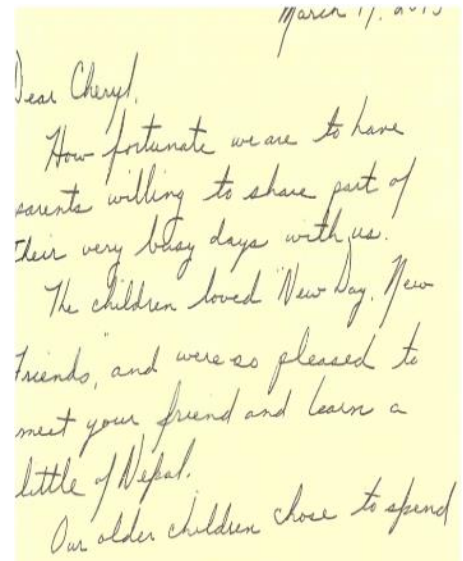 March 17, 2015
Dear Cheryl,
How fortunate we are to have
parents willing to share part of
their very busy days with us.
The children loved "New Day, New
Friends," and were so pleased to
meet your friend and learn a
little of Nepal.
Our older children chose to spend